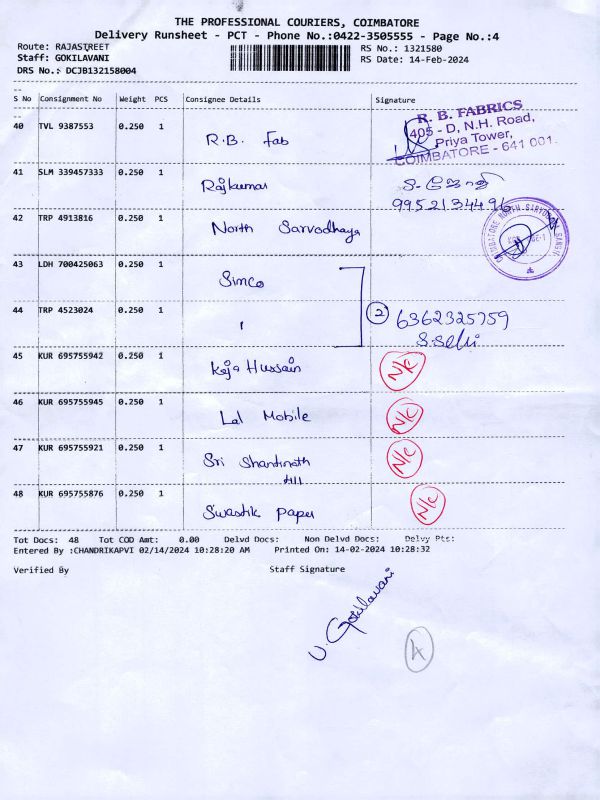 THE PROFESSIONAL COURIERS, COIMBATORE
Delivery Runsheet - PCT - Phone No.:0422-3505555 - Page No.:4
Route: RAJASTREET
RS No.: 1321580
Staff: GOKILAVANI
RS Date: 14-Feb-2024
DRS No.: DCJB132158004
S No Consignment No Weight PCS Consignee Details Signature
40 TVL 9387553 0.250 1 R.B. Fab
R. B. FABRICS
405 - D, N.H. Road,
Priya Tower,
COIMBATORE - 641 001.
41 SLM 339457333 0.250 1 Rajkumar
9952134496
42 TRP 4913816 0.250 1 North Sarvodhaya
43 LDH 700425063 0.250 1 Simco
44 TRP 4523024 0.250 1 "
2 6362325759
45 KUR 695755942 0.250 1 Kaja Hussain N/C
46 KUR 695755945 0.250 1 Lal Mobile N/C
47 KUR 695755921 0.250 1 Sri Shantinath N/C
48 KUR 695755876 0.250 1 Swastik Paper N/C
Tot Docs: 48 Tot COD Amt: 0.00 Delvd Docs: Non Delvd Docs: Delvy Pts:
Entered By :CHANDRIKAPVI 02/14/2024 10:28:20 AM Printed On: 14-02-2024 10:28:32
Verified By Staff Signature
U. Gokilavani
4